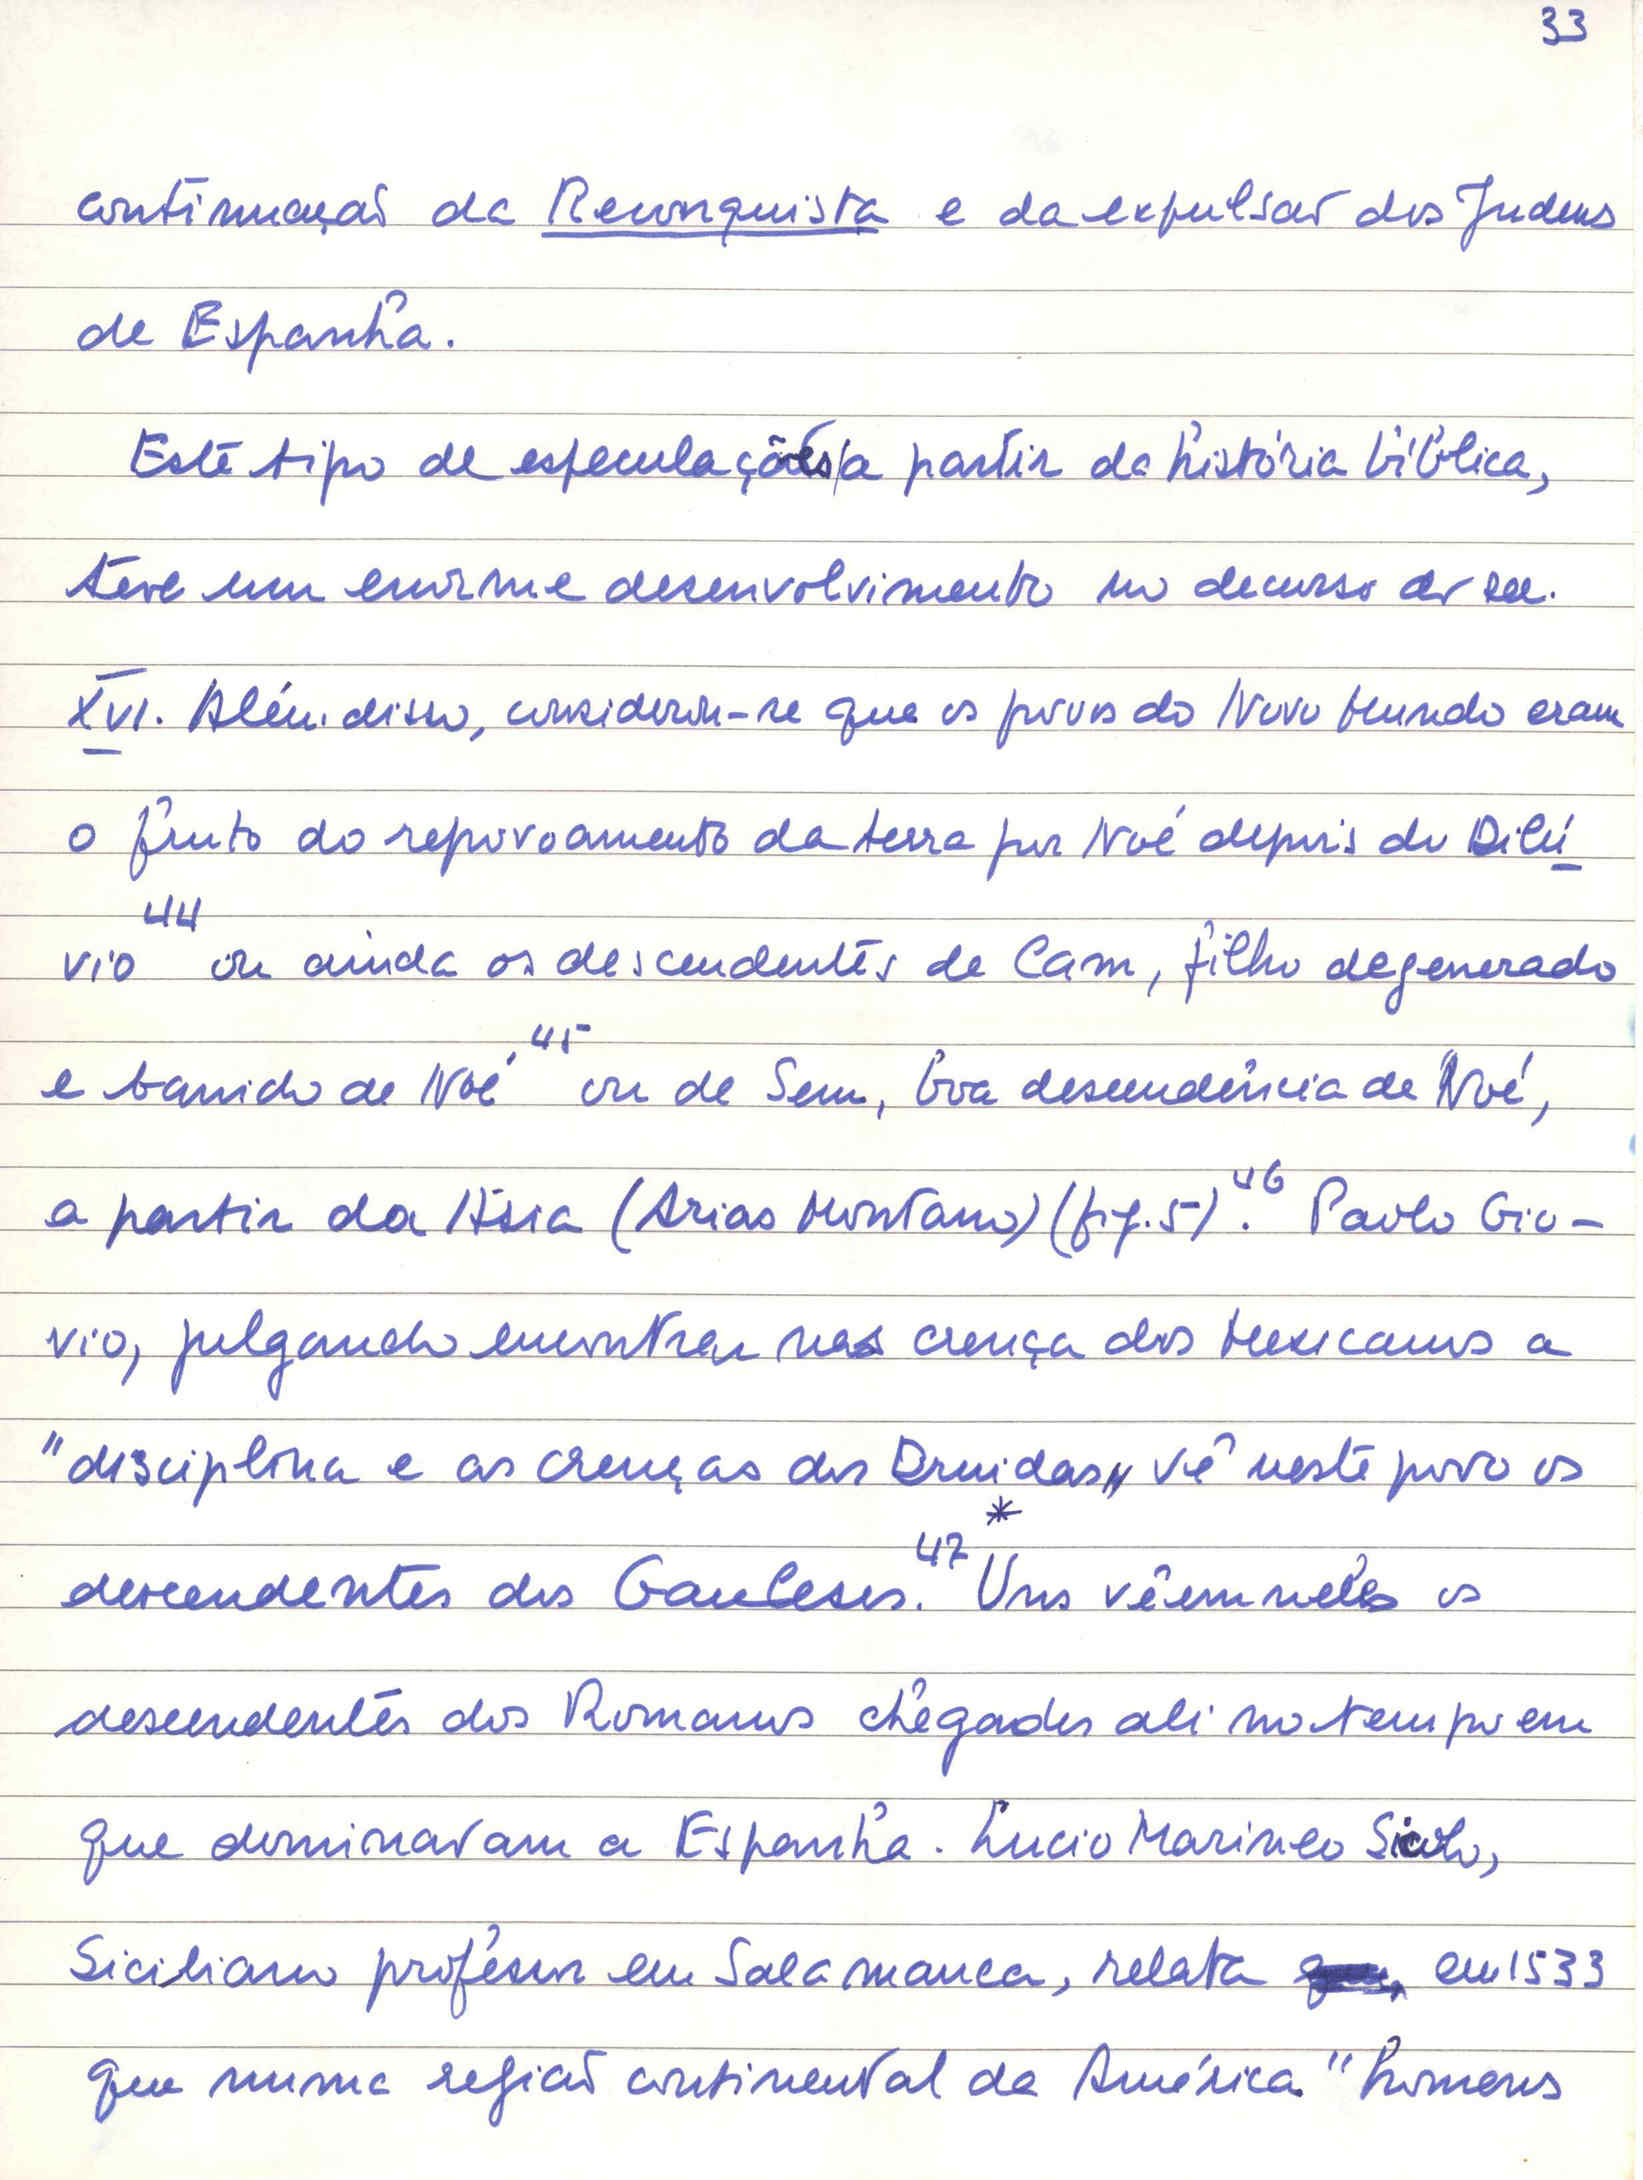 33
continuação da Reconquista e da expulsão dos Judeus
de Espanha.
Este tipo de especulações a partir da história bíblica,
teve um enorme desenvolvimento no decurso do sec.
XVI. Além disso, considerou-se que os povos do Novo Mundo eram
o fruto do repovoamento da terra por Noé depois do Dilú
vio 44 ou ainda os descendentes de Cam, filho degenerado
e banido de Noé, 45 ou de Sem, boa descendência de Noé,
a partir da Ásia (Arias Montano) (fig. 5). 46 Paolo Gio-
vio, julgando encontrar na crença dos Mexicanos a
"disciplina e as crenças dos Druidas" vê neste povo os
descendentes dos Gauleses. 47 * Uns vêem neles os
descendentes dos Romanos chegados ali no tempo em
que dominavam a Espanha. Lucio Marineo Siculo,
Siciliano professor em Salamanca, relata em 1533
que numa região continental da América "homens